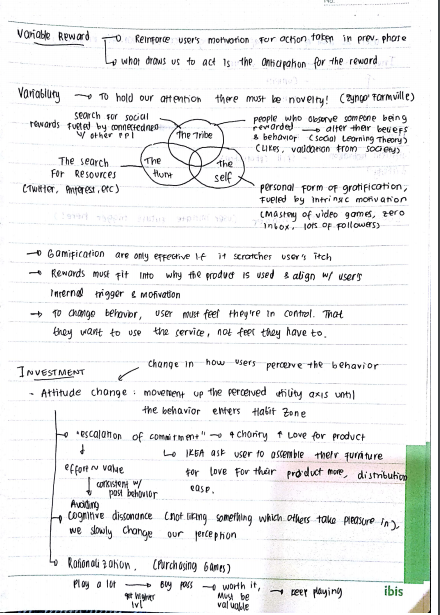 Variable Reward → Reinforce user's motivation for action taken in prev. phase
→ what draws us to act is the anticipation for the reward
Variability → To hold our attention there must be novelty! (Zynga Farmville)
search for social
rewards fueled by connectedness
w/ other ppl
The Tribe
people who observe someone being
rewarded → alter their beliefs
& behavior (Social Learning Theory)
(Likes, validation from society)
The search
For Resources
(Twitter, Pinterest, etc)
The
Hunt
The
self
personal form of gratification,
fueled by intrinsic motivation
(Mastery of video games, zero
inbox, lots of followers)
→ Gamification are only effective if it scratches user's itch
→ Rewards must fit into why the product is used & align w/ users
internal trigger & motivation
→ To change behavior, user must feel they're in control. That
they want to use the service, not feel they have to.
INVESTMENT
change in how users perceive the behavior
- Attitude change : movement up the perceived utility axis until
the behavior enters Habit Zone
→ "escalation of commitment" → ↑ charity ↑ Love for product
↓
effort ~ value
↳ IKEA ask user to assemble their furniture
for love for their product more, distribution
easp.
↓ consistent w/
past behavior
Avoiding
→ Cognitive dissonance (not liking something which others take pleasure in),
we slowly change our perception
→ Rationalization. (Purchasing Games)
Play a lot → Buy pass → worth it, → keep playing
get higher
lvl
Must be
valuable
ibis